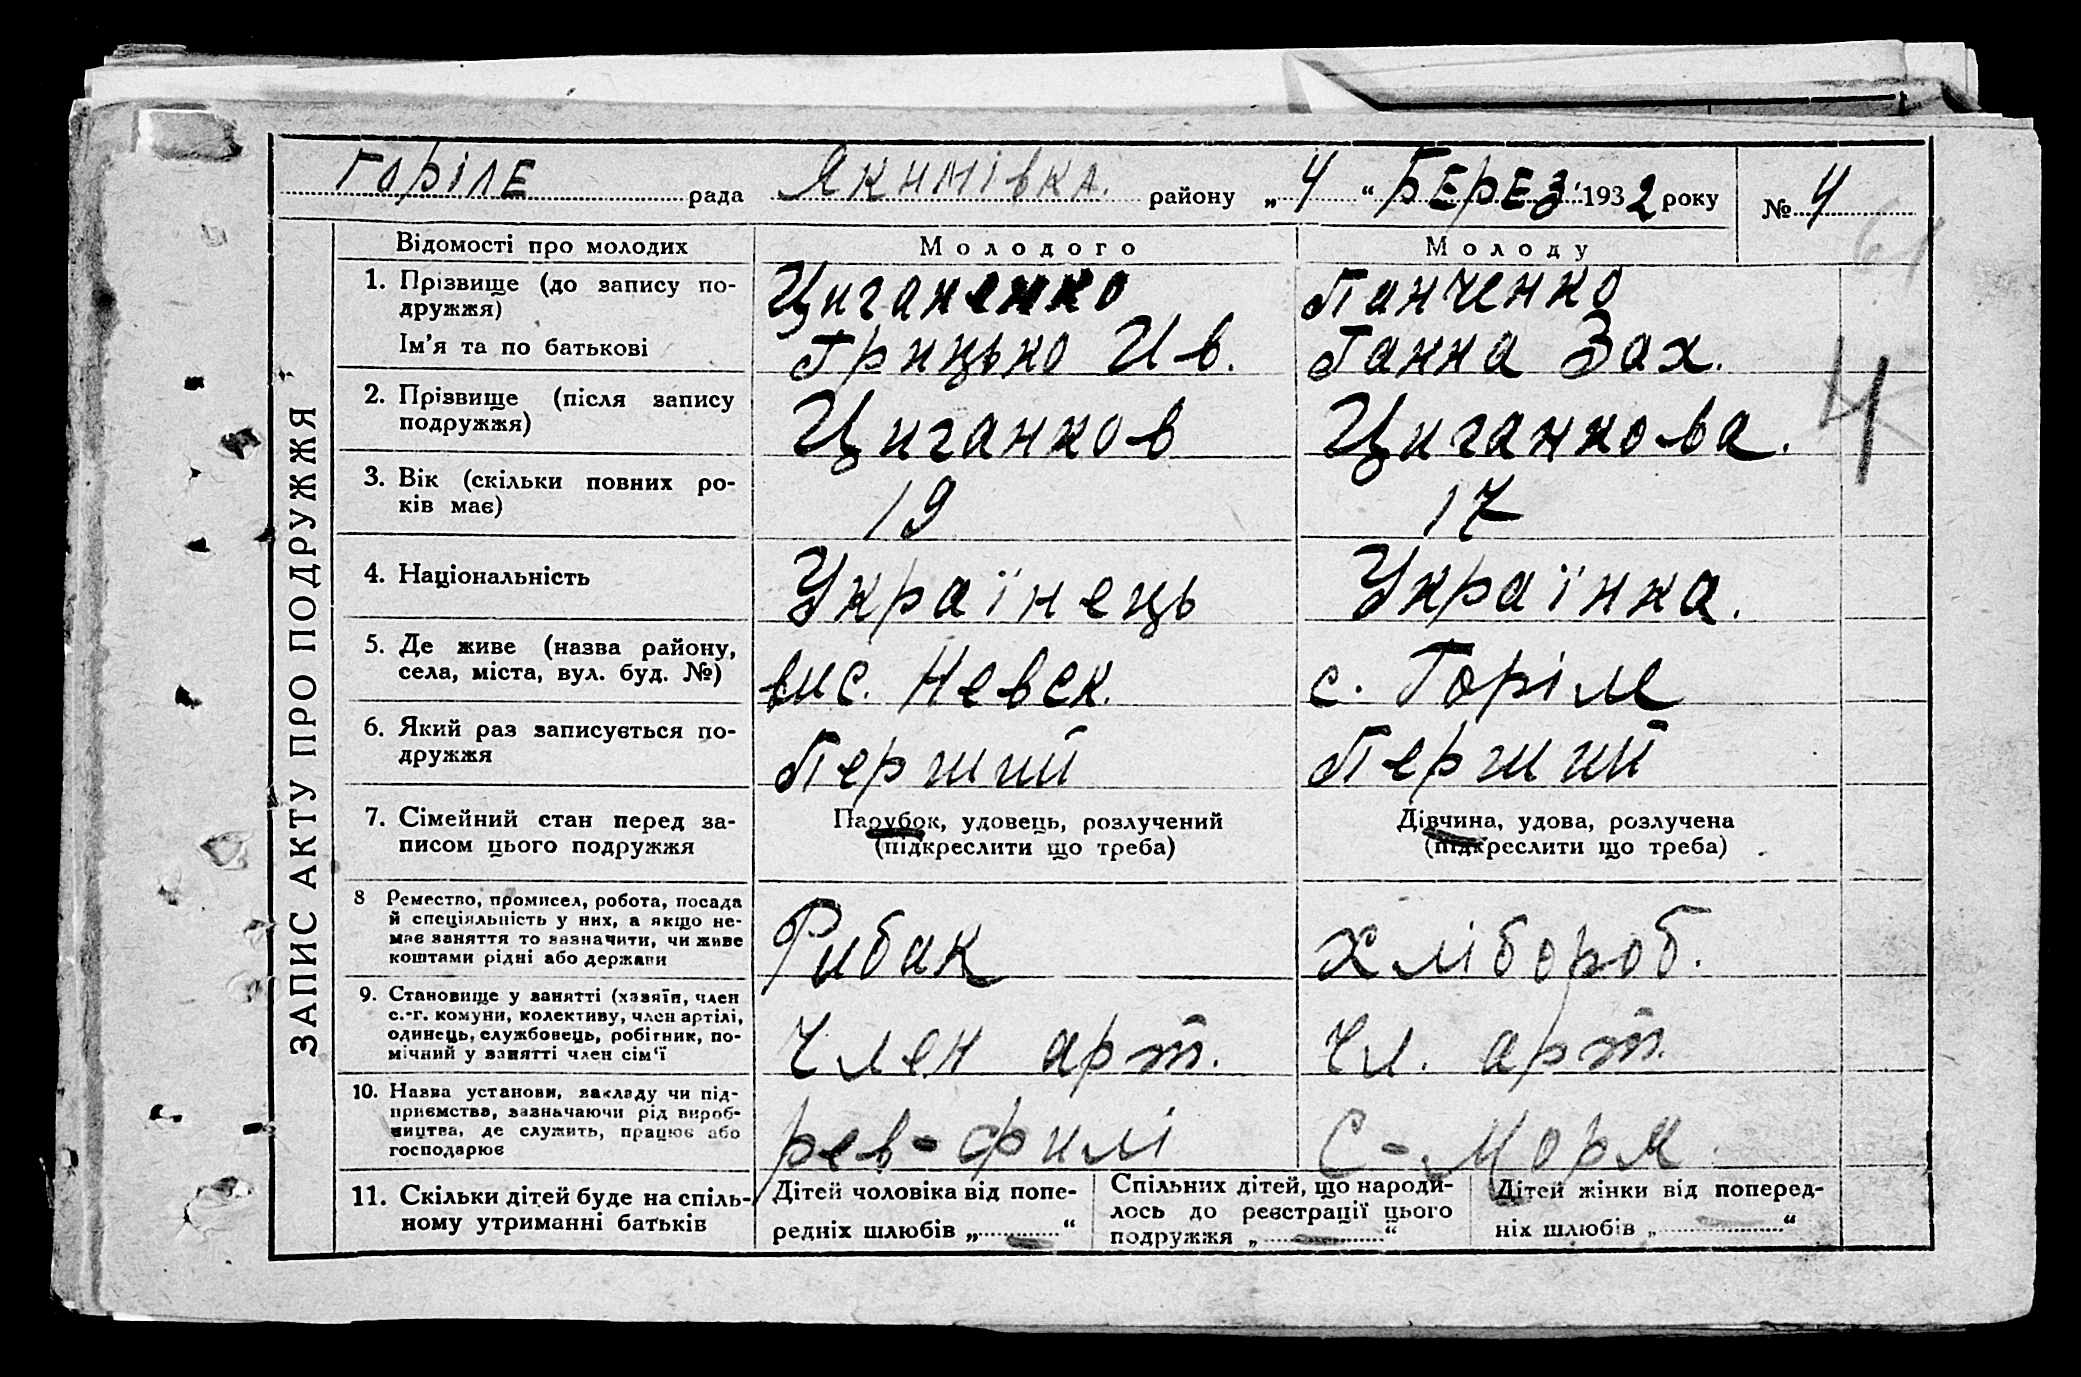 ГОРІЛЕ рада ЯКИМІВКА. району „ 4 “ БЕРЕЗ. 1932 року № 4
61
ЗАПИС АКТУ ПРО ПОДРУЖЖЯ
Відомості про молодих Молодого Молоду
1. Прізвище (до запису по- Циганенко Панченко
дружжя)
Ім’я та по батькові Грицько Ив. Ганна Зах.
4
2. Прізвище (після запису Циганков Циганкова.
подружжя)
3. Вік (скільки повних ро- 19 17
ків має)
4. Національність Українець Українка.
5. Де живе (назва району,
села, міста, вул. буд. №) вис. Невск. с. Горіле
6. Який раз записується по- Перший Перший
дружжя
7. Сімейний стан перед за- Парубок, удовець, розлучений Дівчина, удова, розлучена
писом цього подружжя (підкреслити що треба) (підкреслити що треба)
8 Ремество, промисел, робота, посада
й спеціяльність у них, а якщо не- Рибак Хлібороб.
має заняття то зазначити, чи живе
коштами рідні або держави
9. Становище у занятті (хазяїн, член
с.-г. комуни, колективу, член артілі, Член арт. Чл. арт.
одинець, службовець, робітник, по-
мічний у занятті член сім’ї
10. Назва установи, закладу чи під-
приємства, зазначаючи рід вироб-
ництва, де служить, працює або рев-филі С-Моря
господарює
11. Скільки дітей буде на спіль- Дітей чоловіка від попе- Спільних дітей, що народи- Дітей жінки від поперед-
ному утриманні батьків редніх шлюбів „ — “ лось до реєстрації цього ніх шлюбів „ “
подружжя „ — “